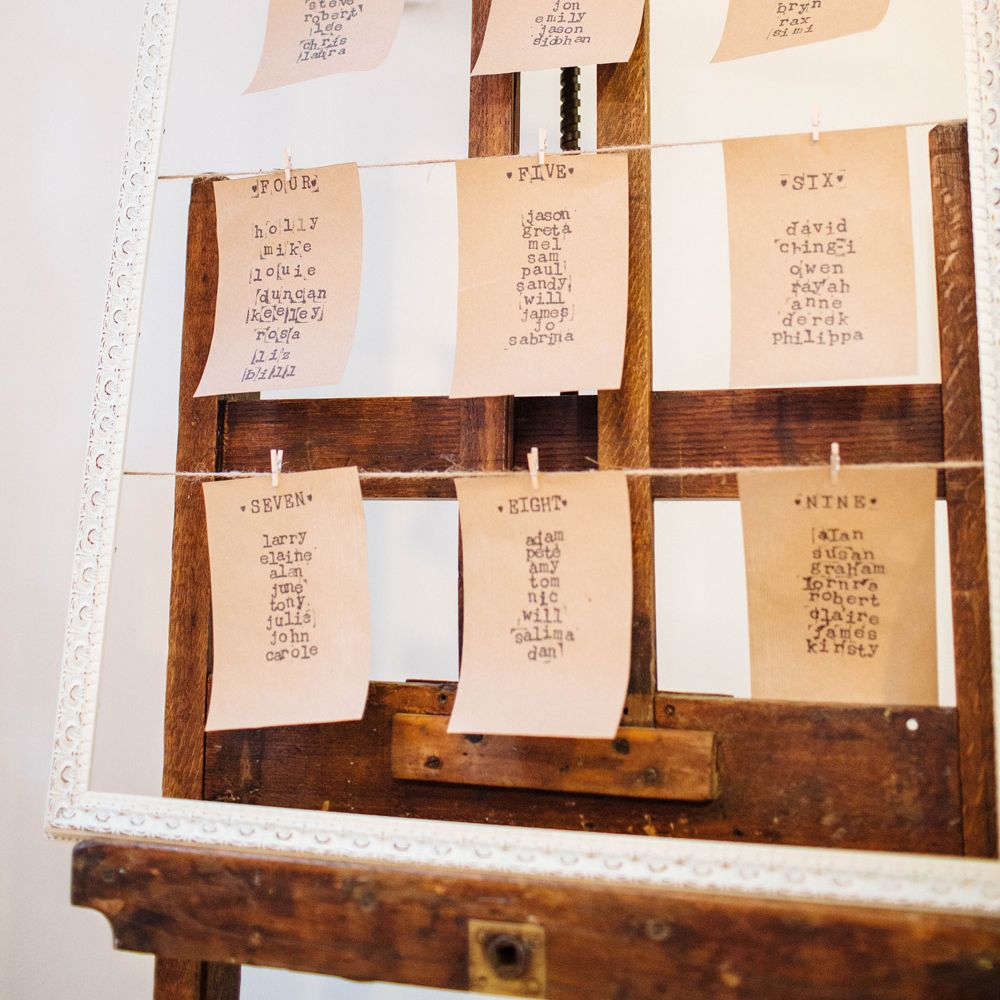 steve
robert
lee
chris
laura
jon
emily
jason
siobhan
bryn
rax
simi
♥FOUR♥
holly
mike
louie
duncan
keeley
rosa
liz
bill
♥FIVE♥
jason
greta
mel
sam
paul
sandy
will
james
jo
sabrina
♥SIX♥
david
ching-i
owen
rayah
anne
derek
philippa
♥SEVEN♥
larry
elaine
alan
june
tony
julie
john
carole
♥EIGHT♥
adam
pete
amy
tom
nic
will
salima
dan
♥NINE♥
alan
susan
graham
lornra
robert
claire
james
kirsty